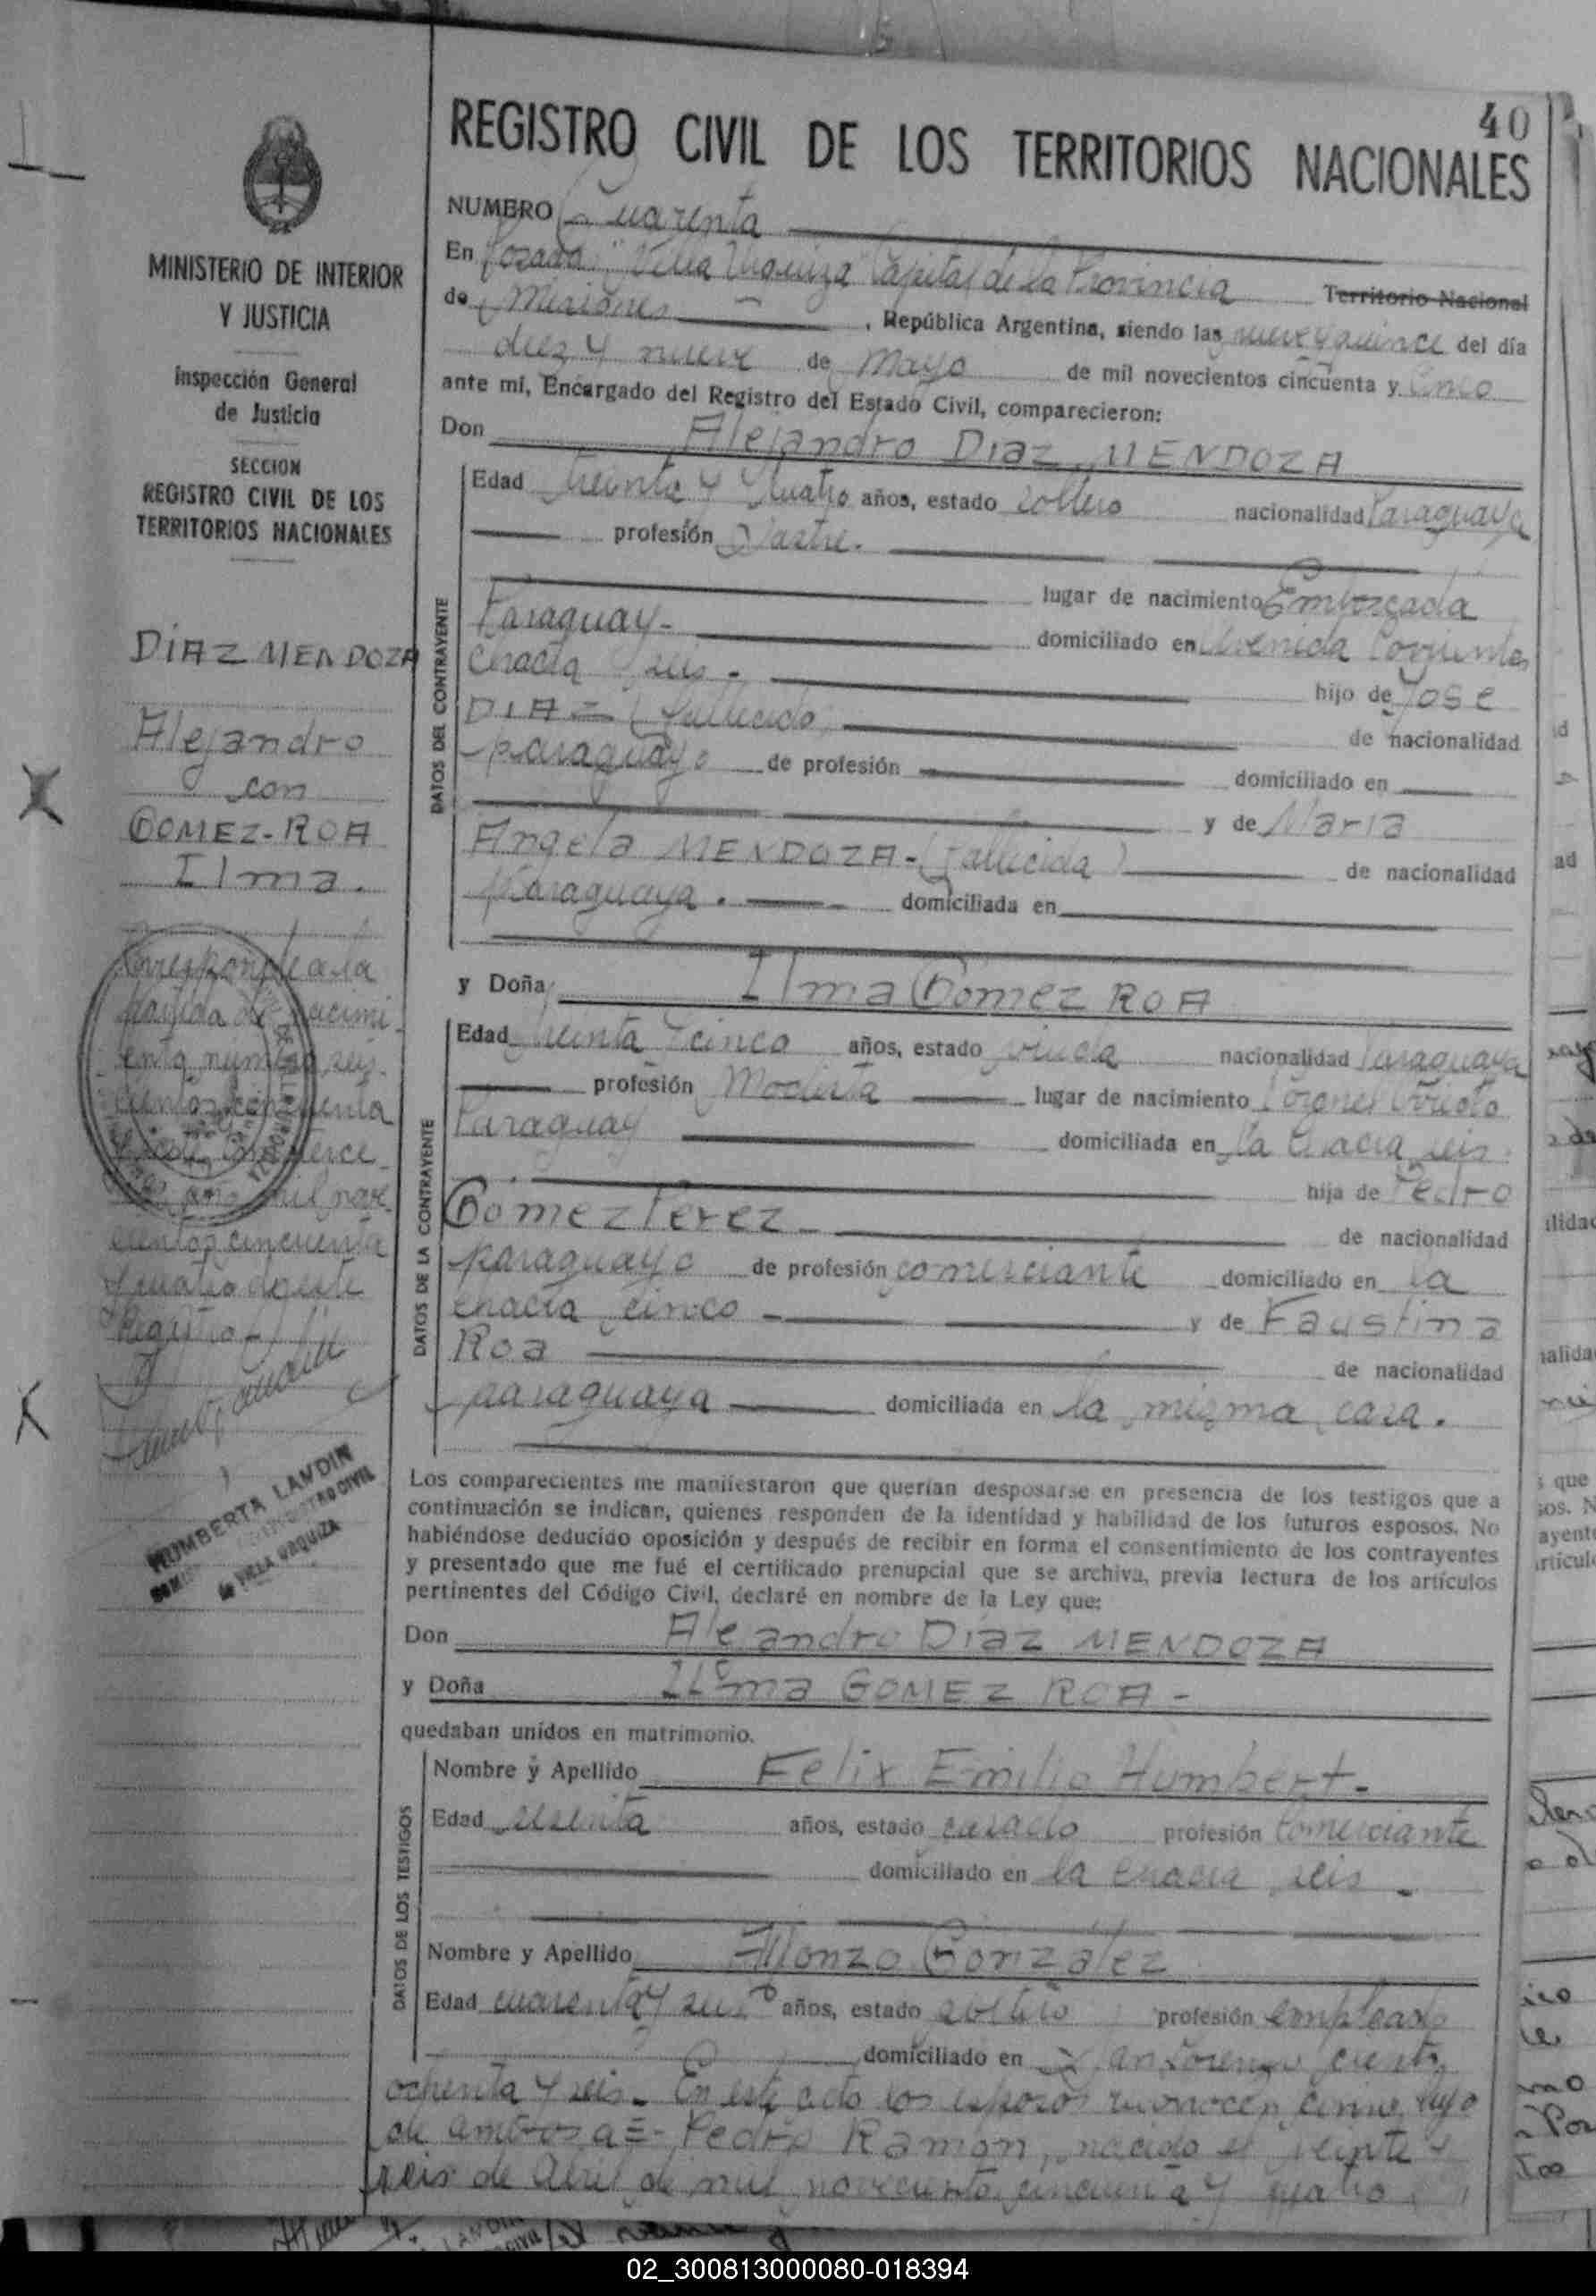 40
REGISTRO CIVIL DE LOS TERRITORIOS NACIONALES
MINISTERIO DE INTERIOR
Y JUSTICIA
Inspección General
de Justicia
SECCION
REGISTRO CIVIL DE LOS
TERRITORIOS NACIONALES
DIAZ MENDOZA
Alejandro
con
GOMEZ-ROA
Ilma.
Corresponde a la
partida de nacimi-
ento número seis-
cientos cincuenta
año mil nove-
cientos cincuenta
y cuatro de este
Registro-
HUMBERTA LANDIN
REGISTRO CIVIL
de VILLA URQUIZA
NUMERO Cuarenta
En Posadas "Villa Urquiza" Capital de la Provincia Territorio Nacional
de Misiones, República Argentina, siendo las nueve y quince del día
diez y nueve de Mayo de mil novecientos cincuenta y cinco
ante mí, Encargado del Registro del Estado Civil, comparecieron:
Don Alejandro DIAZ MENDOZA
DATOS DEL CONTRAYENTE
Edad treinta y cuatro años, estado soltero nacionalidad Paraguaya
profesión Sastre.
lugar de nacimiento Emboscada
Paraguay- domiciliado en Avenida Corrientes
chacra seis - hijo de Jose
DIAZ (fallecido) de nacionalidad
paraguayo de profesión domiciliado en
y de Maria
Angela MENDOZA-(fallecida) de nacionalidad
Paraguaya. domiciliada en
y Doña Ilma Gomez ROA
DATOS DE LA CONTRAYENTE
Edad treinta y cinco años, estado viuda nacionalidad Paraguaya
profesión Modista lugar de nacimiento Coronel Oviedo
Paraguay domiciliada en la Chacra seis.
hija de Pedro
Gomez Perez - de nacionalidad
paraguayo de profesión comerciante domiciliado en la
chacra cinco - y de Faustina
Roa de nacionalidad
paraguaya domiciliada en la misma casa.
Los comparecientes me manifestaron que querían desposarse en presencia de los testigos que a
continuación se indican, quienes responden de la identidad y habilidad de los futuros esposos. No
habiéndose deducido oposición y después de recibir en forma el consentimiento de los contrayentes
y presentado que me fué el certificado prenupcial que se archiva, previa lectura de los artículos
pertinentes del Código Civil, declaré en nombre de la Ley que:
Don Alejandro Diaz MENDOZA
y Doña Ilma GOMEZ ROA-
quedaban unidos en matrimonio.
DATOS DE LOS TESTIGOS
Nombre y Apellido Felix Emilio Humbert-
Edad sesenta años, estado casado profesión comerciante
domiciliado en la chacra seis -
Nombre y Apellido Alonzo Gonzalez
Edad cuarenta y seis años, estado soltero profesión empleado
domiciliado en San Lorenzo ciento
ochenta y seis. En este acto los esposos reconocen como hijo
de ambos a =- Pedro Ramon, nacido el veinte y
seis de Abril de mil novecientos cincuenta y cuatro
02_300813000080-018394